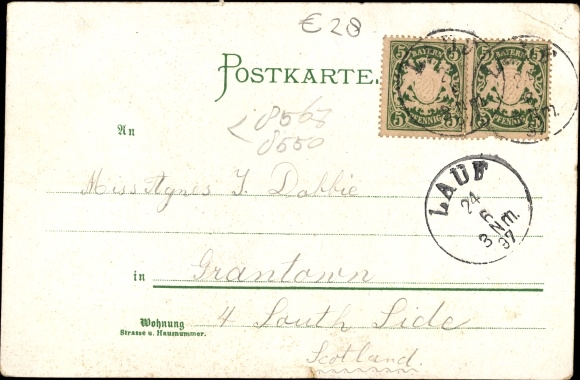 € 28
POSTKARTE.
5 BAYERN 5
5 PFENNIG 5
5 BAYERN 5
5 PFENNIG 5
An
8568
8550
LAUF
24
6
3 Nm.
97
Miss Agnes J. Dobbie
in Grantown
Wohnung
Strasse u. Hausnummer.
4 South Side
Scotland.